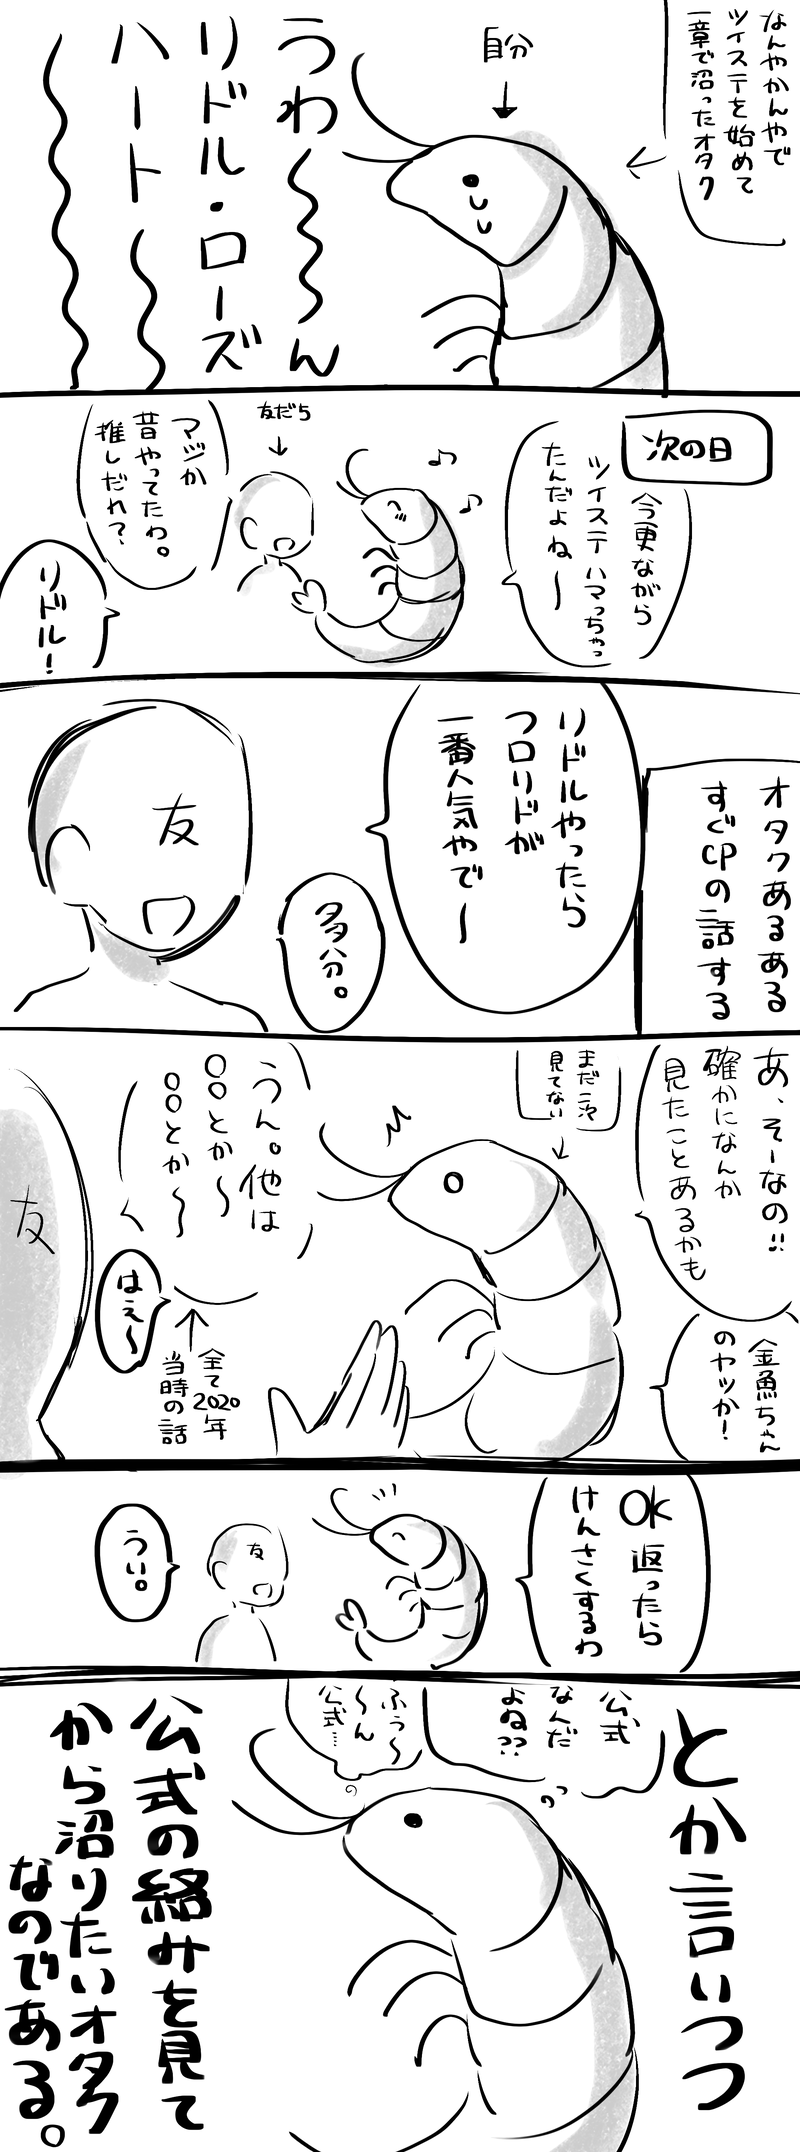 なんやかんやで
ツイステを始めて
一章で沼ったオタク
自分
うわ～～ん
リドル・ローズ
ハート～～
次の日
今更ながら
ツイステハマっちゃっ
たんだよね～
友だち
マジか
昔やってたわ。
推しだれ？
リドル！
オタクあるある
すぐCPの話する
リドルやったら
フロリドが
一番人気やで～
多分。
友
あ、そーなの!!
確かになんか
見たことあるかも
金魚ちゃん
のヤツか！
まだ二次
見てない
うん。他は
○○とか～
○○とか～
はぇ～
全て2020年
当時の話
友
OK返ったら
けんさくするわ
友
うい。
とか言いつつ
公式
なんだ
よね??
ふぅ～
～ん
公式…
公式の絡みを見て
から沼りたいオタク
なのである。